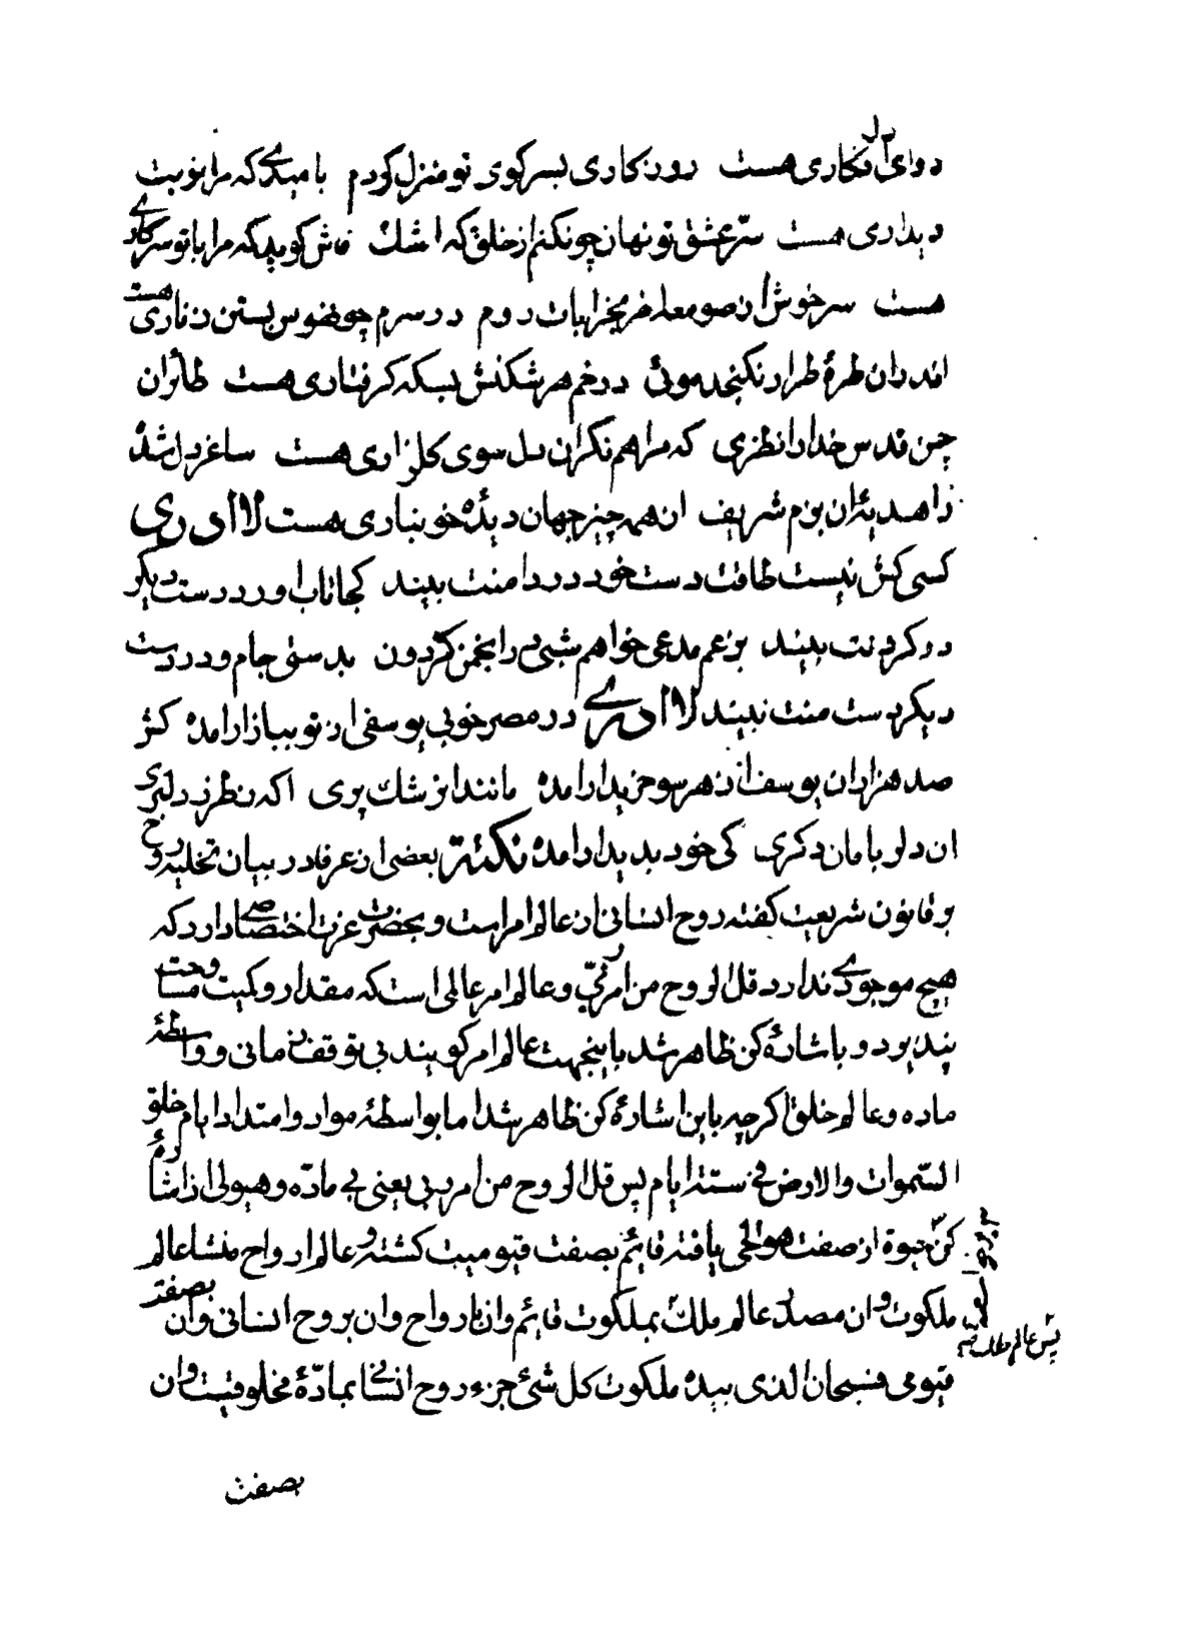 دوای دل نکاری هست روزکاری بسر کوی تو منزل کردم بامیدی که مرا نوبت
دیداری هست سر عشق تو نهان چونکنم از خلق که اشک فاش کوید که مرا با تو سر کاری
هست سرخوش از صومعه بخرابات روم در سرم چون هوس بستن زناری هست
اندران طره طرار نکنجد موئی در خم هر شکنش بسکه کرفتاری هست طائران
چمن قدس خدا را نظری که مرا هم نکران دل سوی کلزاری هست ساغر دل شد
زاهد ازان بزم شریف از همه چیز جهان دیده خونباری هست لا ادری
کسی کش نیست طاقت دست خود در دامنت بیند کجا تاب اورد دست دیکر
در کردنت بیند بزعم مدعی خواهم شبی را انجمن کردون بدستی جام و در دست
دیکر دست منت بیند لا ادری در مصر خوبی یوسفی از تو ببازار امده کز
صد هزاران یوسف از هر سو خریدار امده مانند از شک پری اکه نظر زد لبری
ان دلربا مان دکری کی خود بدیدار امده نکته بعضی از عرفا در بیان تخلیه روح
بر قانون شریعت کفته روح انسانی از عالم امر است و بحضرت عزت اختصاصی دارد که
هیچ موجودی ندارد قل الروح من امر ربی و عالم امر عالمی است که مقدار و کمیت و مساحت
پندیرد و باشارهٔ کن ظاهر شد باینجهت عالم امر کویند بی توقف زمانی و واسطهٔ
ماده و عالم خلق اکرچه باین اشارهٔ کن ظاهر شد اما بواسطهٔ مواد و امتداد ایام خلق
السموات والارض فی ستة ایام پس قل الروح من امر ربی یعنی بی ماده و هیولی از اشارهٔ
کن حیوة از صفت هو الحی یافته قایم بصفت قیومیت کشته و عالم ارواح منشا عالم
ملکوت و ان مصدر عالم ملک بملکوت قایم وان بارواح وان بروح انسانی وان بصفت
پس عالم ملک
قیومی فسبحان الذی بیده ملکوت کل شئ جزء روح انسانی بمادهٔ مخلوقیت وان
بصفت